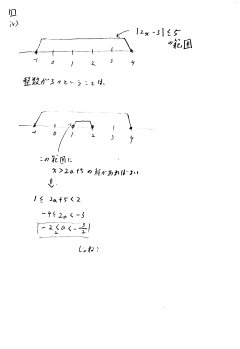 1
(v)
|2x-3| ≦ 5
の範囲
-1 0 1 2 3 4
整数が3つということは、
-1 0 1 2 3 4
この範囲に
x>2a+5 の
↓
1 ≦ 2a+5 < 2
-4 ≦ 2a < -3
-2 ≦ a < -3/2